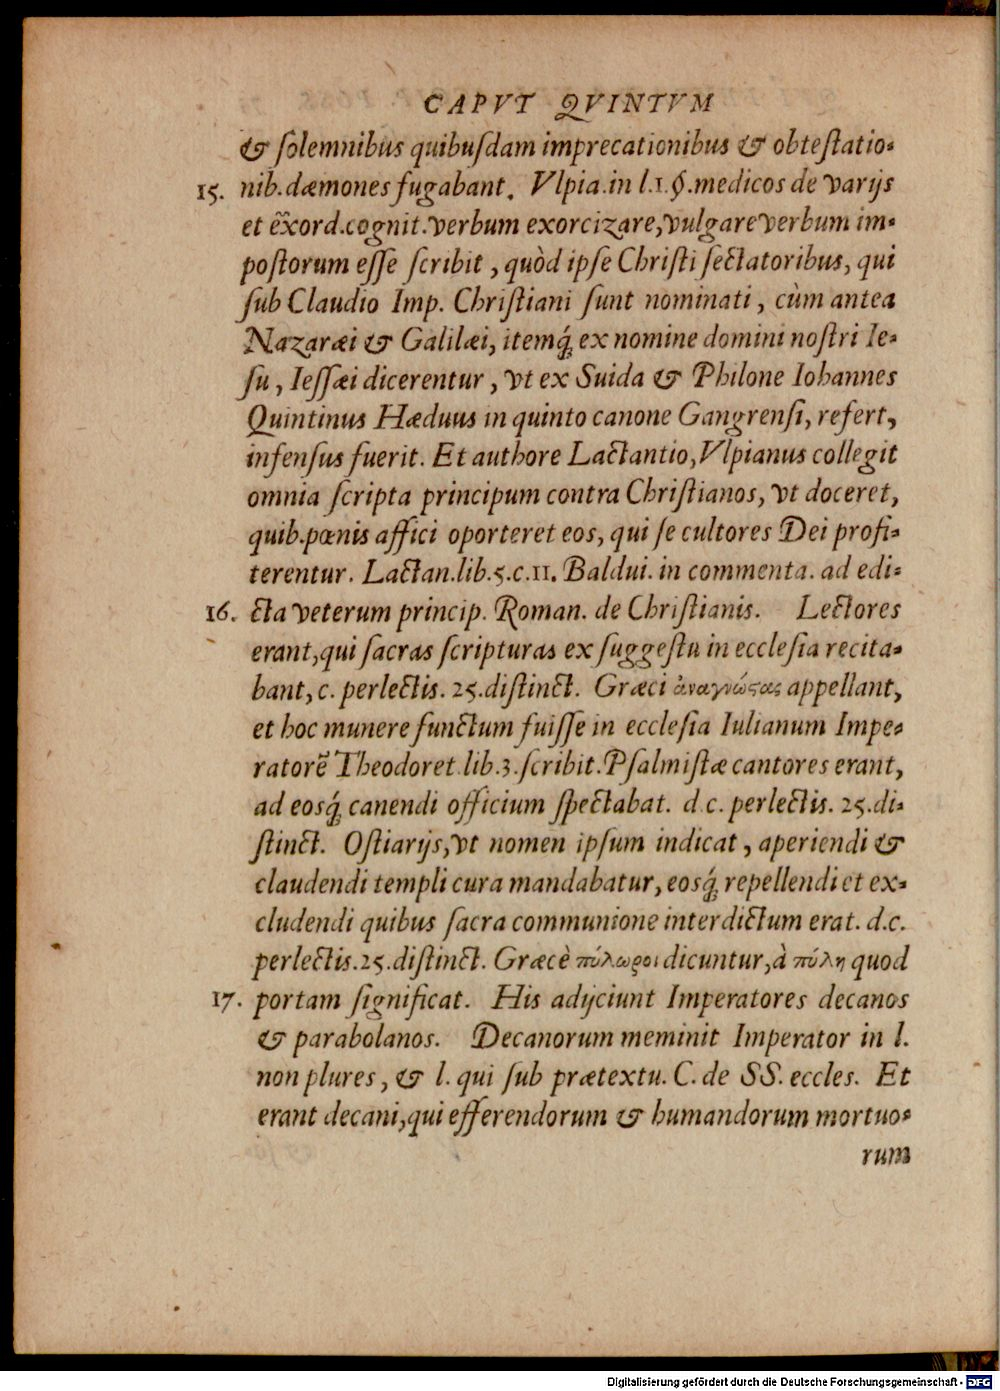 CAPVT QVINTVM
& ſolemnibus quibuſdam imprecationibus & obteſtatio-
15. nib. dæmones fugabant. Vlpia. in l.1.§. medicos de varijs
et ẽxord. cognit. verbum exorcizare, vulgare verbum im-
poſtorum eſſe ſcribit, quòd ipſe Chriſti ſectatoribus, qui
ſub Claudio Imp. Chriſtiani ſunt nominati, cùm antea
Nazaræi & Galilæi, itemq́ꝫ ex nomine domini noſtri Ie-
ſu, Ieſſæi dicerentur, vt ex Suida & Philone Iohannes
Quintinus Hæduus in quinto canone Gangrenſi, refert,
infenſus fuerit. Et authore Lactantio, Vlpianus collegit
omnia ſcripta principum contra Chriſtianos, vt doceret,
quib. pœnis affici oporteret eos, qui ſe cultores Dei profi-
terentur. Lactan. lib. 5. c. 11. Baldui. in commenta. ad edi-
16. cta veterum princip. Roman. de Chriſtianis. Lectores
erant, qui ſacras ſcripturas ex ſuggeſtu in eccleſia recita-
bant, c. perlectis. 25. diſtinct. Græci ἀναγνώϛας appellant,
et hoc munere functum fuiſſe in eccleſia Iulianum Impe-
ratorẽ Theodoret. lib. 3. ſcribit. Pſalmiſtæ cantores erant,
ad eosq́ꝫ canendi officium ſpectabat. d. c. perlectis. 25. di-
ſtinct. Oſtiarijs, vt nomen ipſum indicat, aperiendi &
claudendi templi cura mandabatur, eosq́ꝫ repellendi et ex-
cludendi quibus ſacra communione interdictum erat. d.c.
perlectis. 25. diſtinct. Græcè πύλωροι dicuntur, à πύλη quod
17. portam ſignificat. His adijciunt Imperatores decanos
& parabolanos. Decanorum meminit Imperator in l.
non plures, & l. qui ſub prætextu. C. de SS. eccles. Et
erant decani, qui efferendorum & humandorum mortuo-
rum
Digitalisierung gefördert durch die Deutsche Forschungsgemeinschaft - DFG